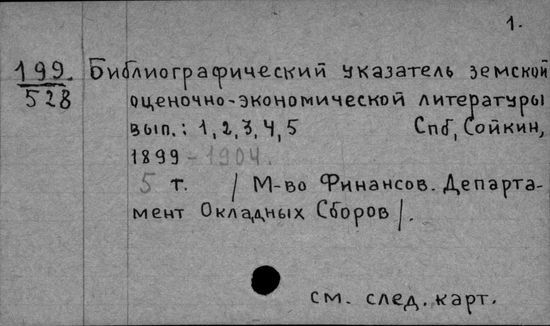 1.
199. Библиографический указатель земской
528 оценочно-экономической литературы
вып.: 1,2,3,4,5 Спб, Сойкин,
1899-1904.
5 т. / М-во Финансов. Департа-
мент Окладных Сборов/.
см. след. карт.